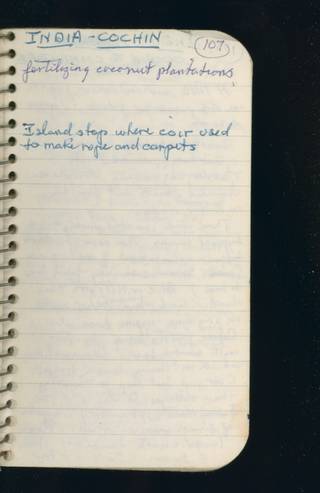 INDIA - COCHIN
107
fertilizing coconut plantations
Island stop where coir used
to make rope and carpets